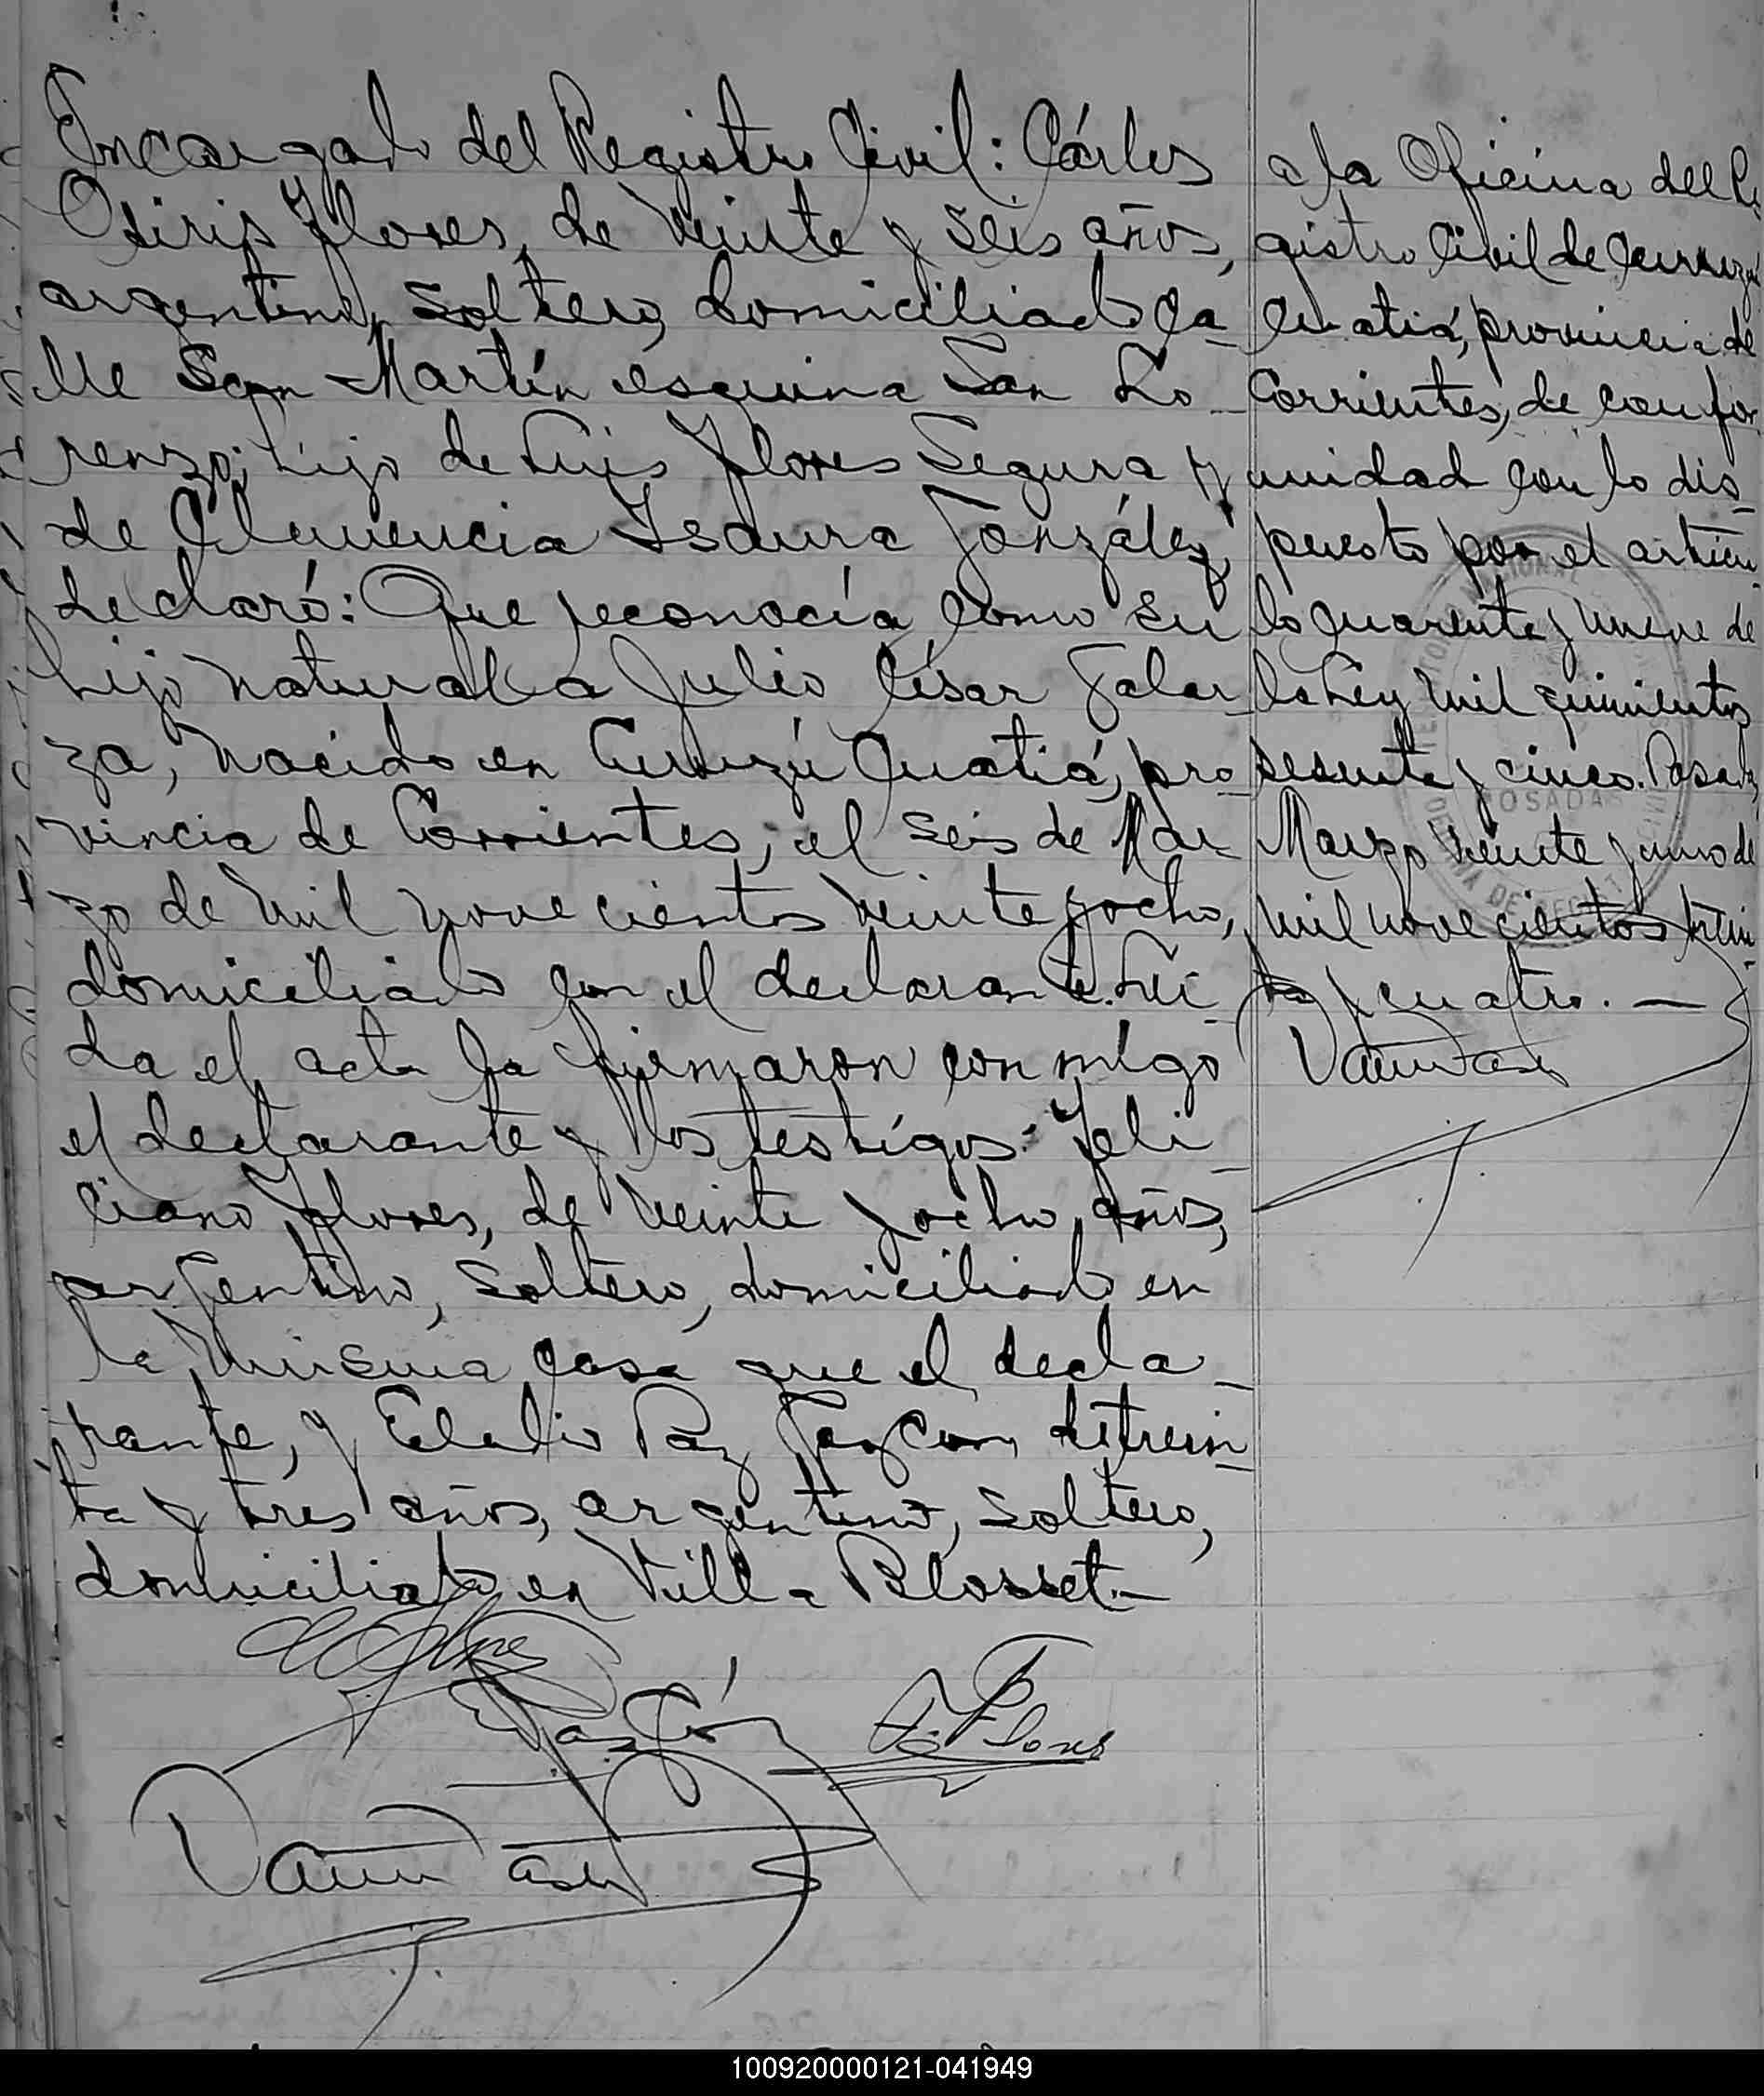 Encargado del Registro Civil: Cárlos
Osiris Flores, de veinte y seis años,
argentino, soltero, domiciliado ca-
lle San Martín esquina San Lo-
renzo; hijo de Luis Flores Segura y
de Clemencia Isaura González,
declaró: Que reconocía como su
hijo natural a Julio César Galar-
za, nacido en Curuzú Cuatiá, pro-
vincia de Corrientes, el seis de Mar-
zo de mil novecientos veinte y ocho,
domiciliado con el declarante. Leí-
da el acta la firmaron conmigo
el declarante y los testigos: Feli-
ciano Flores, de veinte y ocho años,
argentino, soltero, domiciliado en
la misma casa que el decla-
rante, y Eladio Paz de trein-
ta y tres años, argentino, soltero,
domiciliado en Villa Blosset.-
F. Flores
a la Oficina del Re
gistro Civil de Curuzú
Cuatiá, provincia de
Corrientes, de confor
midad con lo dis-
puesto por el artícu-
lo cuarenta y nueve de
la Ley mil quinientos
sesenta y cinco. Posadas,
Marzo veinte y uno de
mil novecientos trein-
ta y cuatro. —
TERRITORIO NACIONAL
POSADAS
100920000121-041949